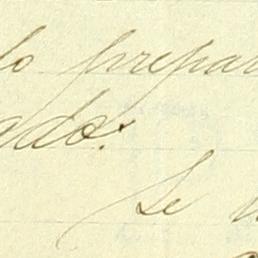 lo prepar
ados.
Se